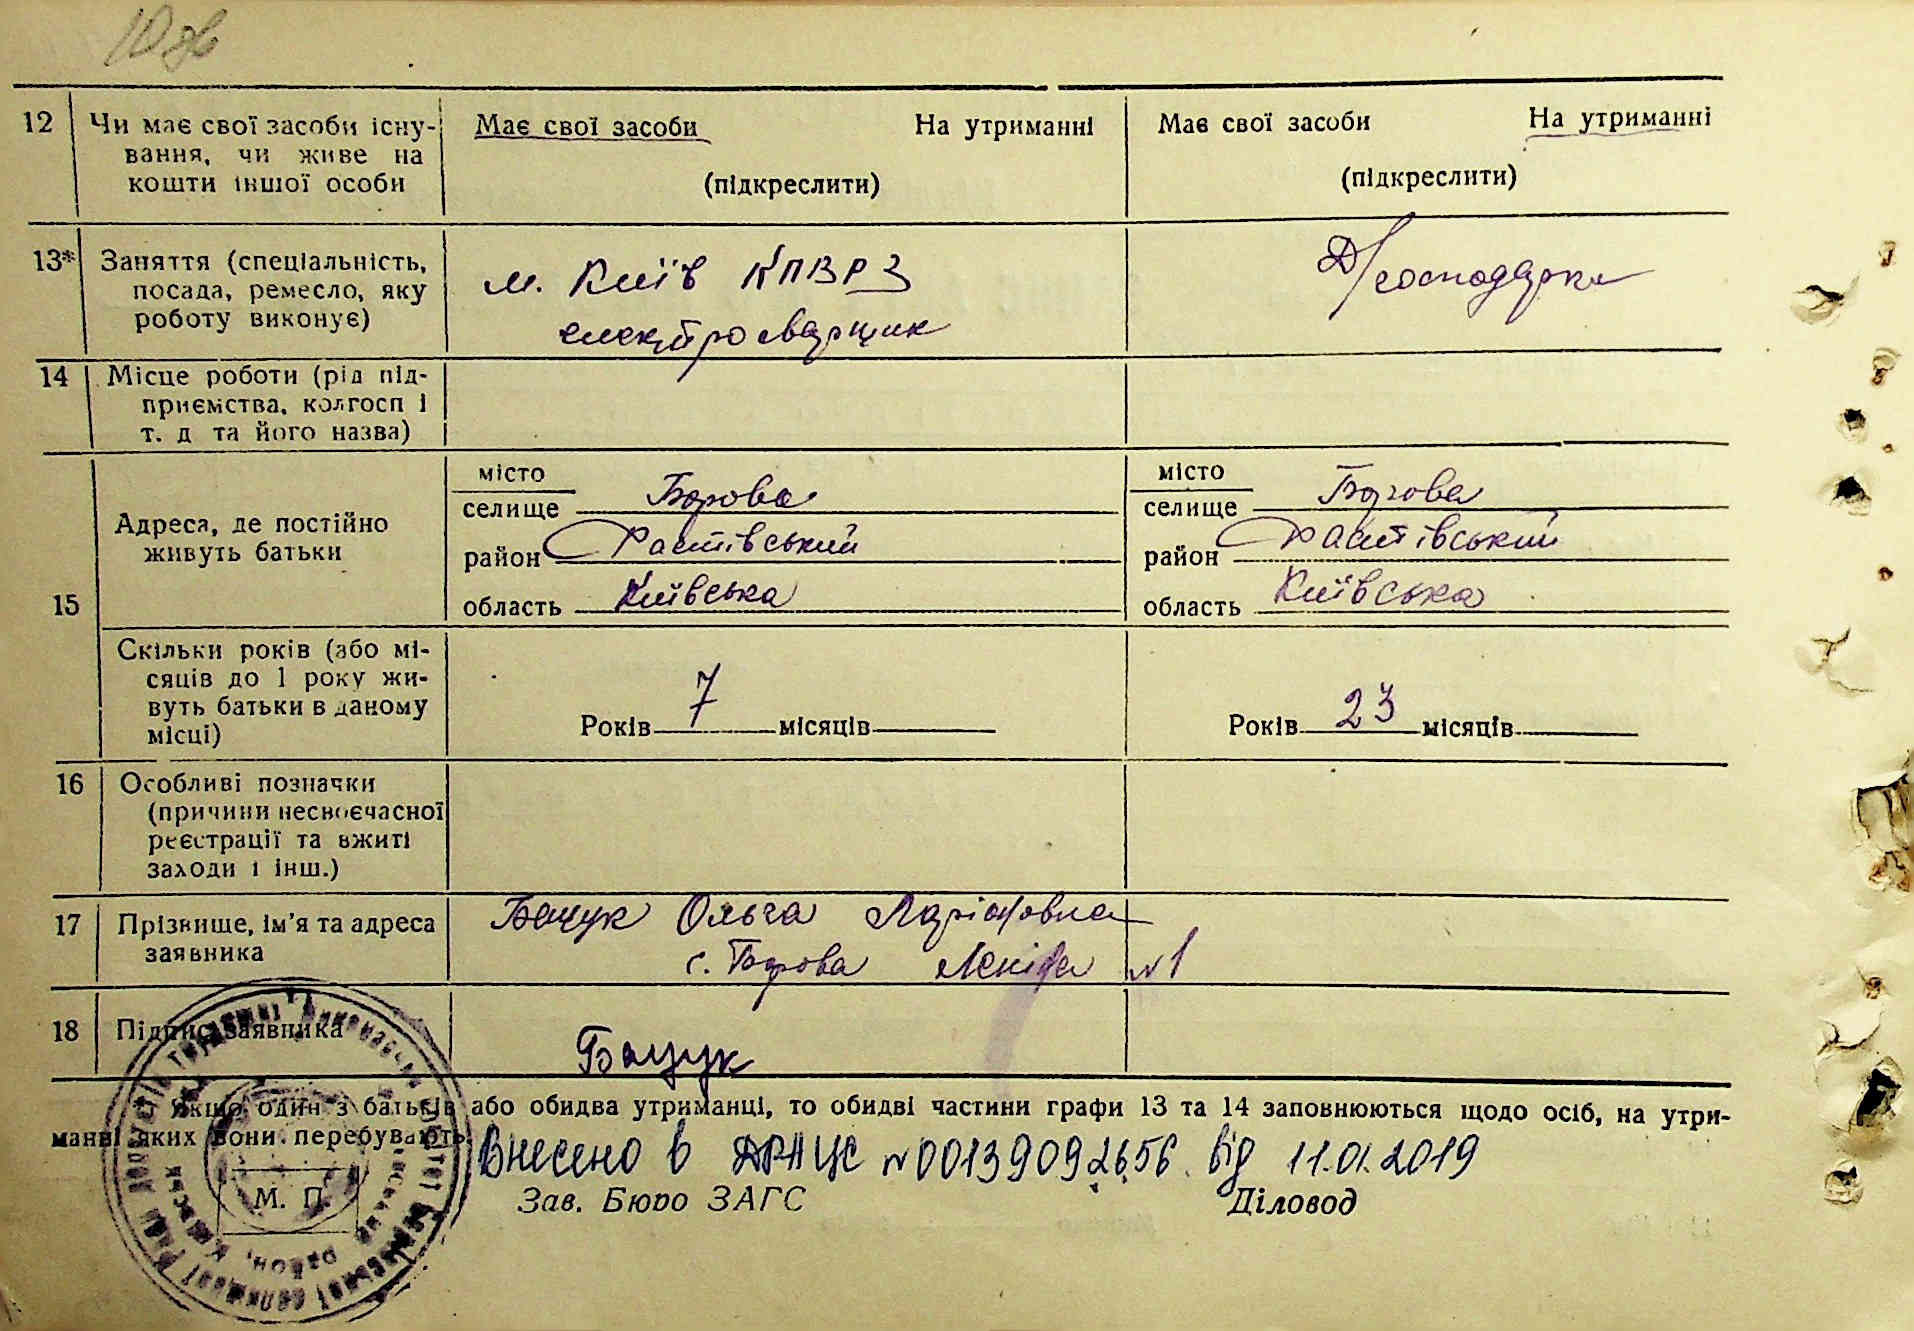 12 Чи має свої засоби існу-
вання, чи живе на
кошти іншої особи
Має свої засоби На утриманні
(підкреслити)
Має свої засоби На утриманні
(підкреслити)
13* Заняття (спеціальність,
посада, ремесло, яку
роботу виконує)
м. Київ КПВРЗ
електросварщик
Д/господарка
14 Місце роботи (рід під-
приємства, колгосп і
т. д та його назва)
15 Адреса, де постійно
живуть батьки
місто
селище Борова
район Фастівський
область Київська
місто
селище Борова
район Фастівський
область Київська
Скільки років (або мі-
сяців до 1 року жи-
вуть батьки в даному
місці)
Років 7 місяців
Років 23 місяців
16 Особливі позначки
(причини несвоєчасної
реєстрації та вжиті
заходи і інш.)
17 Прізвище, ім'я та адреса
заявника
Бащук Ольга Ларіоновна
с. Борова Леніна №1
18 Підпис заявника
Бащук
Якщо один з батьків або обидва утриманці, то обидві частини графи 13 та 14 заповнюються щодо осіб, на утри-
манні яких вони перебувають.
Внесено в ДРАЦС №00139092656 від 11.01.2019
М. П.
Зав. Бюро ЗАГС Діловод